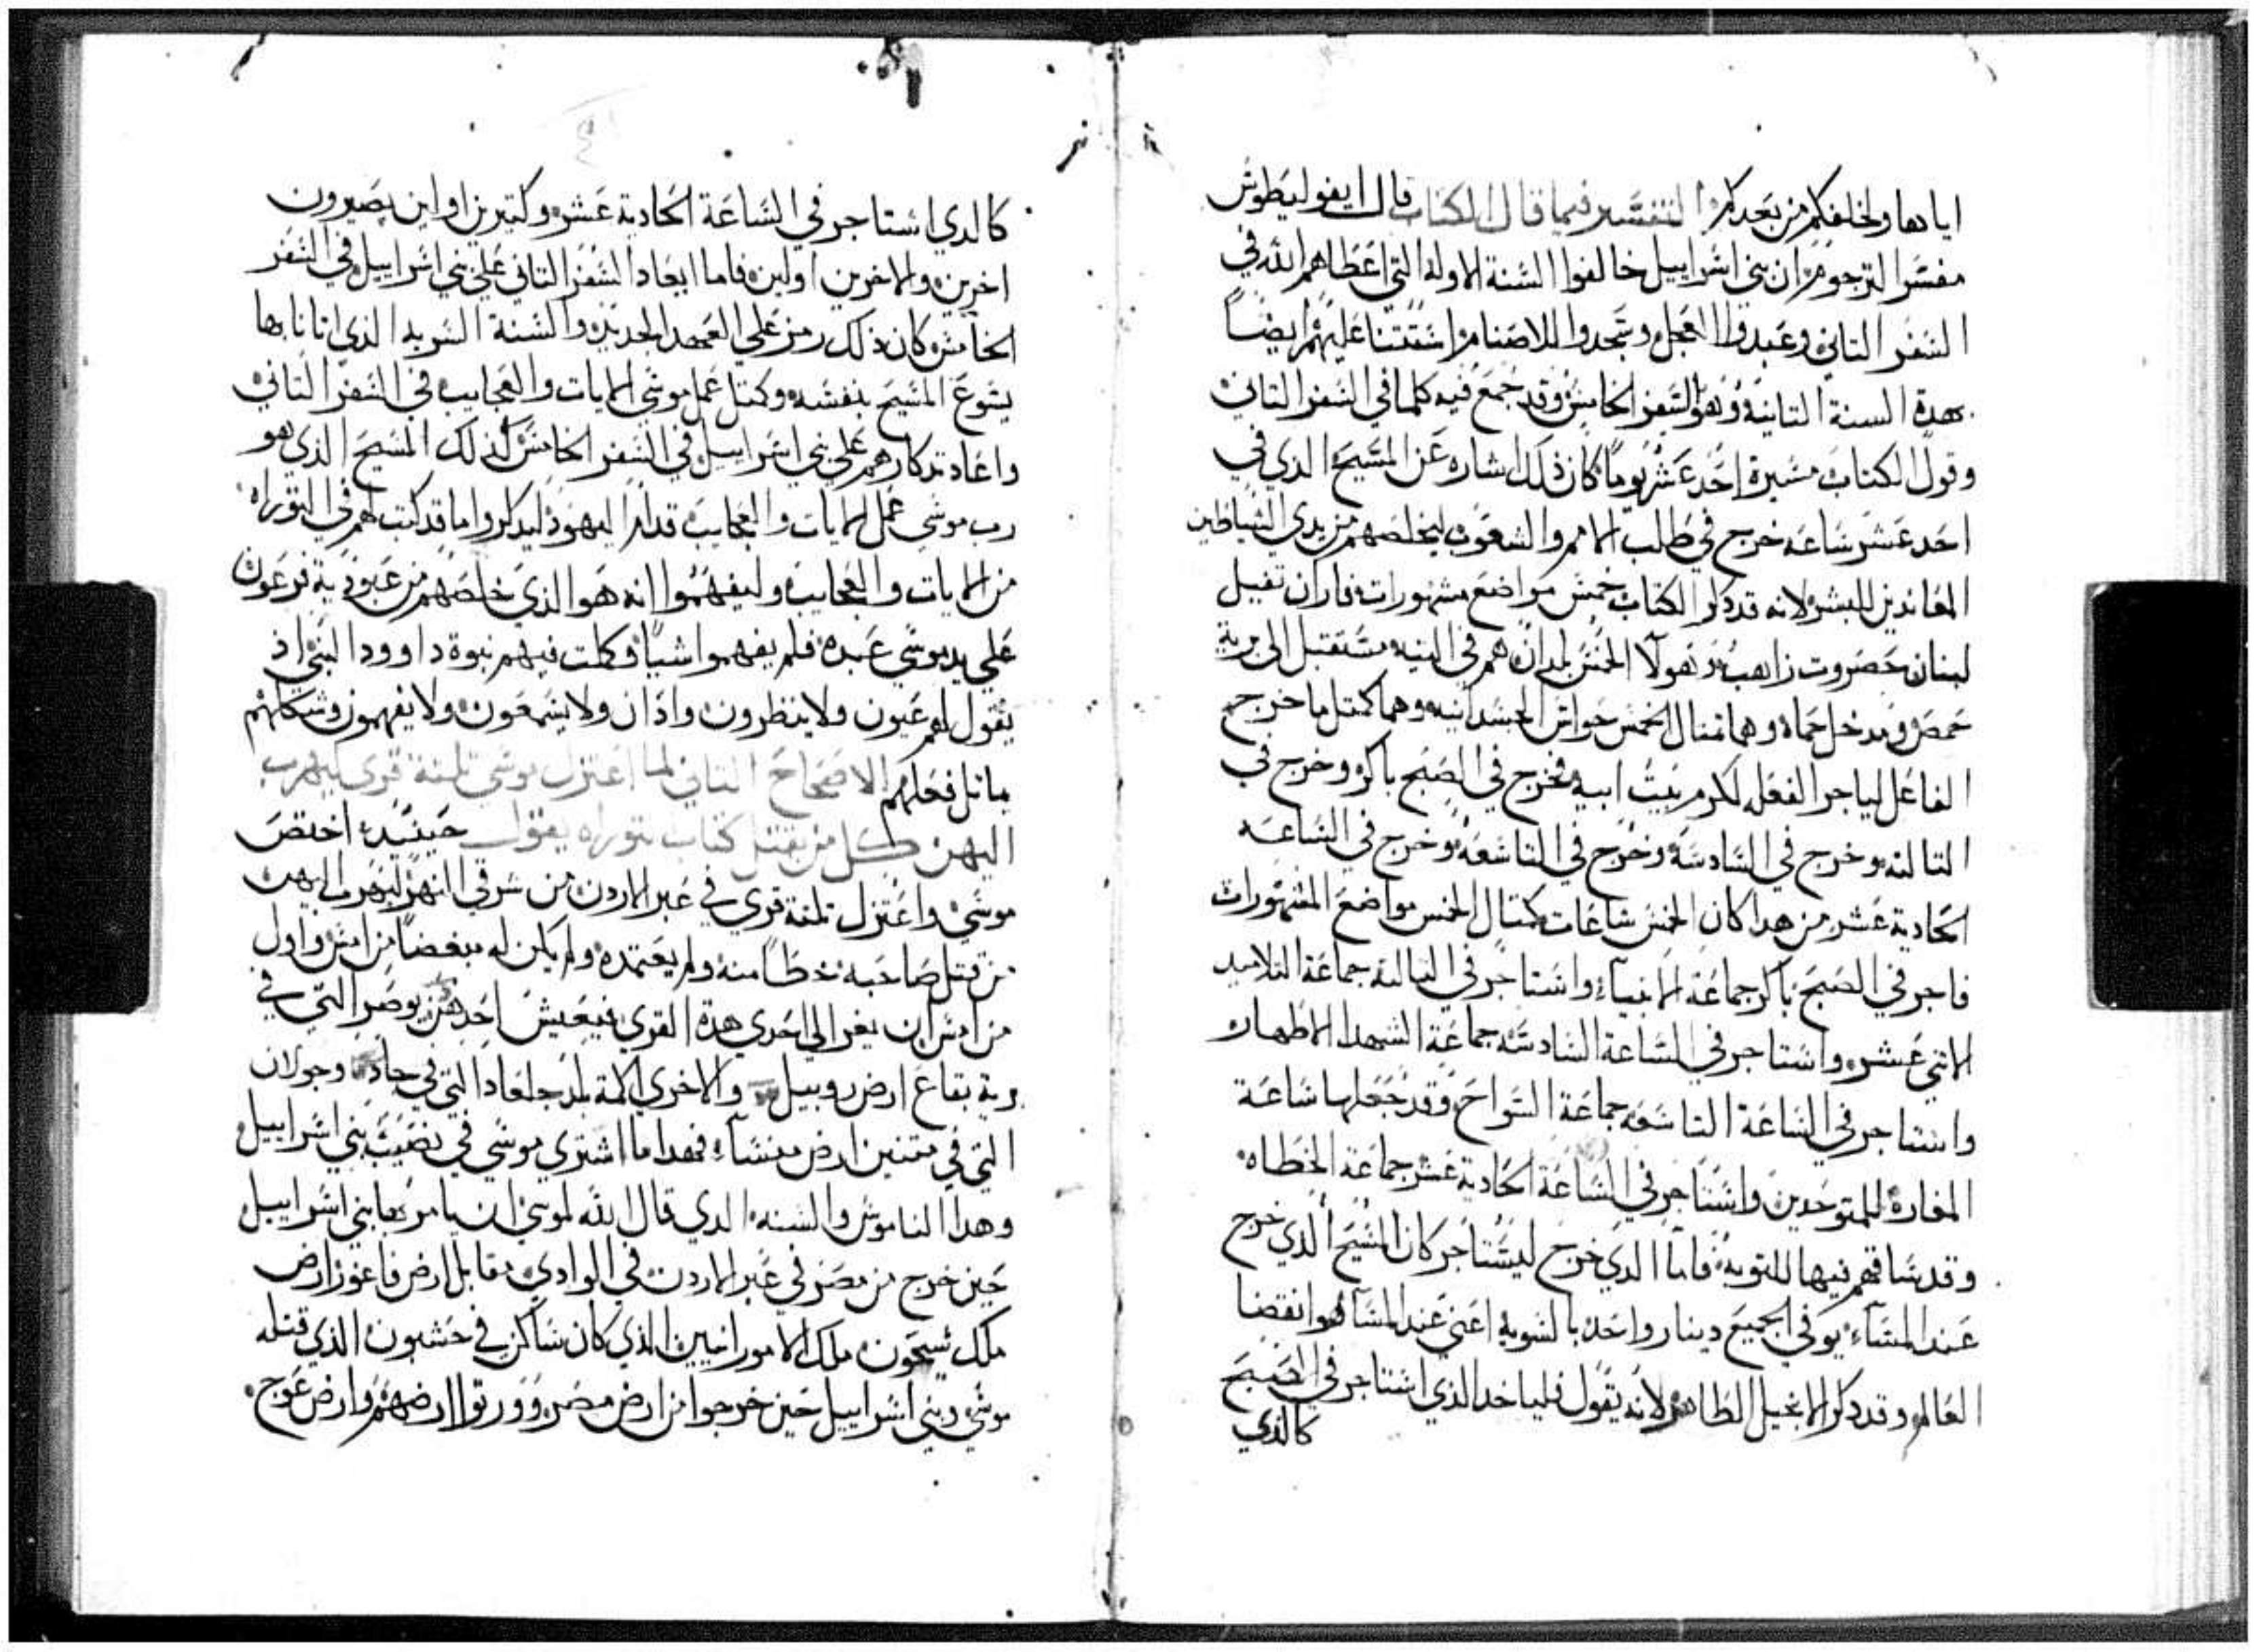 اياها ولخلفكم من بعدكم التفسير فيما قال الكتاب قال ايفوليطوس
مفسر الترجوم ان بني اسراييل خالفوا السنة الاوله التي اعطاهم الله في
السفر التاني وعبدوا العجل وسجدوا للاصنام استتنا عليهم ايضا
هدة السنة التانية وهو السفر الخامس وقد جمع فيه كلما في السفر التاني
وقول الكتاب مسيرة احد عشر يوما كان ذلك اشاره عن المسيح الذي في
احد عشر ساعه خرج في طلب الامم والشعوب ليخلصهم من يدي الشياطين
المعاندين للبشر لانه قد ذكر الكتاب خمس مواضع مشهورات فاران تفيل
لبنان حصروت زاهب وهولا الخمس بلدان هم في التيه مستقبل الى برية
حمص ومدخل حماه وهما تمثال الخمس حواس الجسدانيه وهما كمتل ما خرج
الفاعل لياجر الفعله لكرم بيت ابيه فخرج في الصبح باكر وخرج في
التالته وخرج في السادسه وخرج في التاسعه وخرج في الساعه
الحادية عشر من هدا كان الخمس ساعات كمتال الخمس مواضع المشهورات
فاجر في الصبح باكر جماعة الانبياء واستاجر في التالتة جماعة التلاميد
الاتني عشر واستاجر في الساعة السادسه جماعة الشهدا الاطهار
واستاجر في الساعة التاسعه جماعة السواح وقد جعلها ساعة
المفارة للمتوحدين واستاجر في الساعة الحادية عشر جماعة الخطاه
وقد ساقهم فيها للتوبة فاما الدي خرج ليستاجر كان المسيح الدي خرج
عند المساء يوفي الجميع دينار واحد بالسويه اعني عند المسا هو انقضا
العالم وقد دكر الانجيل الطاهر لانه يقول فلياخد الذي استاجر في الصبح
كالذي
كالدي استاجر في الساعة الحادية عشر وكتيرين اولين يصيرون
اخرين والاخرين اولين فاما ايعاد السفر التاني على بني اسراييل في السفر
الخامس كان ذلك رمز على العهد الجديد والسنة السريه الذي اتانا بها
يسوع المسيح بنفسه وكمتل عمل موسى الايات والعجايب في السفر التاني
واعاد تدكارهم على بني اسراييل في السفر الخامس كذلك المسيح الذي هو
رب موسى عمل الايات والعجايب قدام اليهود ليدكروا ما قد كتب لهم في التوراه
من الايات والعجايب وليفهموا انه هو الذي خلصهم من عبودية فرعون
على يد موسى عبده فلم يفهموا شيا وكملت فيهم نبوة داوود النبي اذ
يقول لهم عيون ولا ينظرون واذان ولا يسمعون ولا يفهمون وشكلهم
ماتل فعلهم الاصحاح التاني لما اعتزل موسى تلتة قرى ليهرب
اليهن كل من يقتل كتاب توراه يقول حينيد اختص
موسى واعتزل تلتة قري في عبر الاردن من شرقي النهر ليهرب اليهن
من قتل صاحبه خطا منه ولم يعتمده ولم يكن له مبغضا من امس واول
من امس ان يفر الى احدي هدة القرى فيعيش احدهن بوصر التي في
برية بقاع ارض روبيل والاخري الامة بلد جلعاد التي في جاد وجولان
التي في متنين ارض منشاء فهدا ما اشتري موسى في نصيب بني اسراييل
وهدا الناموس والسنه الدي قال الله لموسى ان يامر بها بني اسراييل
حين خرج من مصر في عبر الاردن في الوادي مقابل ارض فاغور ارض
ملك سيحون ملك الامورانيين الذي كان ساكن في حشبون الذي قتله
موسى وبني اسراييل حين خرجوا من ارض مصر وورتوا ارضهم وارض عوج